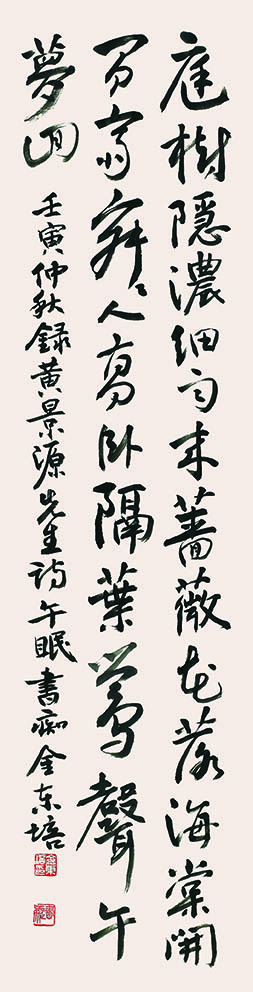 庭樹隱濃細雨来薔薇花落海棠開
閒窓寂々人高卧隔葉鶯聲午
夢回 壬寅仲秋録黄景源先生詩午眠 書痴金东培